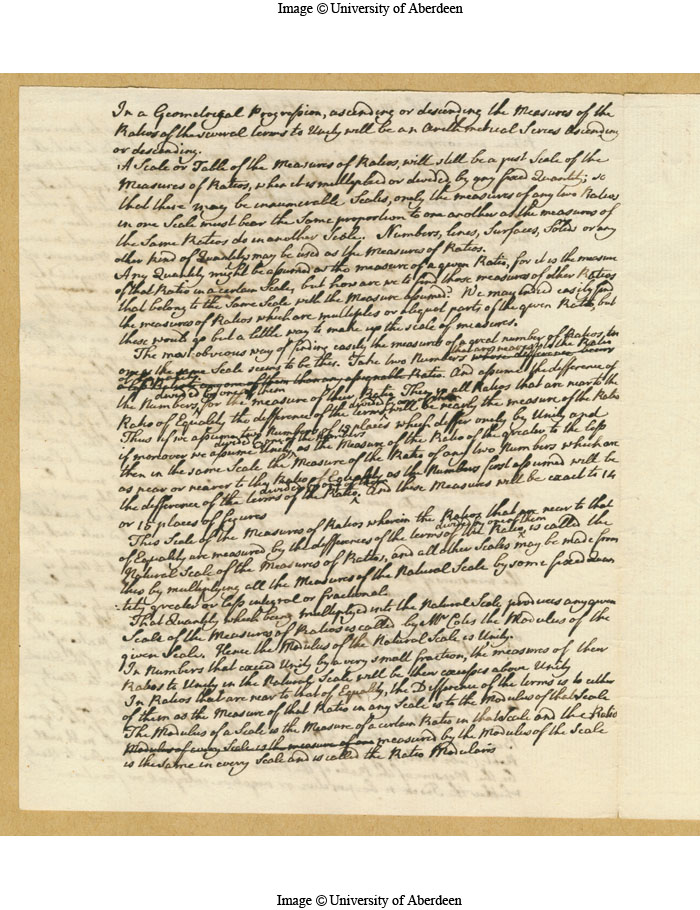 Image © University of Aberdeen
In a Geometrical Progression, ascending or descending the Measures of the
Ratios of the several terms to Unity will be an Arithmetical Series Ascending
or descending.
A Scale or Table of the Measures of Ratios, will still be a just Scale of the
Measures of Ratios, when it is multiplied or divided by any fixed Quantity; so
that there may be innumerable Scales, only the measures of any two Ratios
in one Scale must bear the Same proportion to one another as the measures of
the Same Ratios do in another Scale. Numbers, lines, Surfaces, Solids or any
other kind of Quantity may be used as the Measures of Ratios.
Any Quantity might be assumed as the measure of a given Ratio, for it is the measure
of that Ratio in a certain Scale, but how are we to find those measures of other Ratios
that belong to the Same Scale with the Measure assumed? We may indeed easily find
the measures of Ratios which are multiples or aliquot parts of the given Ratio, but
these would go but a little way to make up the scale of measures.
The most obvious way of finding easily the measures of a great number of Ratios, in
one & the same Scale seems to be this. Take two Numbers whose difference
that are nearer to the Ratio
of Equality any one of them than any assignable Ratio. And assume the difference of
divided by one of them
the Numbers, for the measure of their Ratio. Then in all Ratios that are near to the
Ratio of Equality the difference of the terms divided by one of them will be nearly the measure of the Ratio
Thus if we assume two Numbers of 12 places which differ onely by Unity and
divided by one of the Numbers
if moreover we assume Unity as the Measure of the Ratio of the greater to the less
then in the same Scale the Measure of the Ratio of any two Numbers which are
as near or nearer to the Ratio of Equality as the Numbers first assumed will be
divided by one of them
the difference of the terms of the Ratio. And these Measures will be exact to 14
or 15 places of figures
This Scale of the Measures of Ratios wherein the Ratios that are near to that
divided by one of them
of Equality are measured by the differences of the terms of the Ratio, is called the
Natural Scale of the Measures of Ratios, and all other Scales may be made from
this by multiplying all the Measures of the Natural Scale by some fixed quan
tity greater or less integral or fractional.
That Quantity which being multiplyed into the Natural Scale produces any given
Scale of the Measures of Ratios is called by Mr Cotes the Modulus of the
given Scale. Hence the Modulus of the Natural Scale is Unity.
In Numbers that exceed Unity by a very small fraction, the measures of their
Ratios to Unity in the Natural Scale will be their excesses above Unity
In Ratios that are near to that of Equality, the Difference of the terms is to either
of them as the Measure of that Ratio in any Scale is to the Modulus of that Scale
The Modulus of a Scale is the Measure of a certain Ratio in that Scale and the Ratio
Modulus of every Scale is the measure of one measured by the Modulus of the Scale
is the same in every Scale and is called the Ratio Modularis
Image © University of Aberdeen